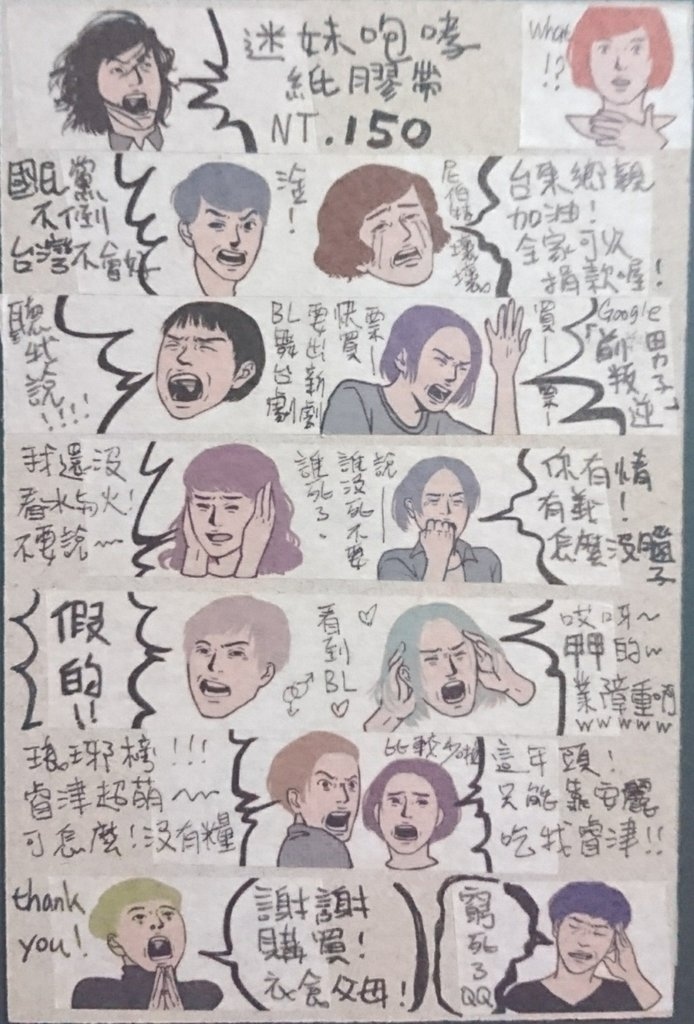 迷妹咆哮
紙膠帶
NT.150
What
!?
國民黨
不倒
台灣不會好
淦!
尼伯特
壞壞。
台東鄉親
加油!
全家可以
捐款喔!
聽我說!!!!
BL舞台劇
要出新劇
快買票—
買—票—
Google
「前叛逆
男子」
我還沒
看水与火!
不要說~
說—
誰沒死不要
誰死了。
你有情
有義!
怎麼沒腦子
假
的!!
看到BL♡
♡
哎呀~
甲甲的~
業障重啊
wwwww
瑯琊榜!!!
睿津超萌~~
可怎麼!沒有糧
比較少糧
這年頭!
只能靠安麗
吃我睿津!!
thank
you!
謝謝
購買!
衣食父母!
窮死了
QQ